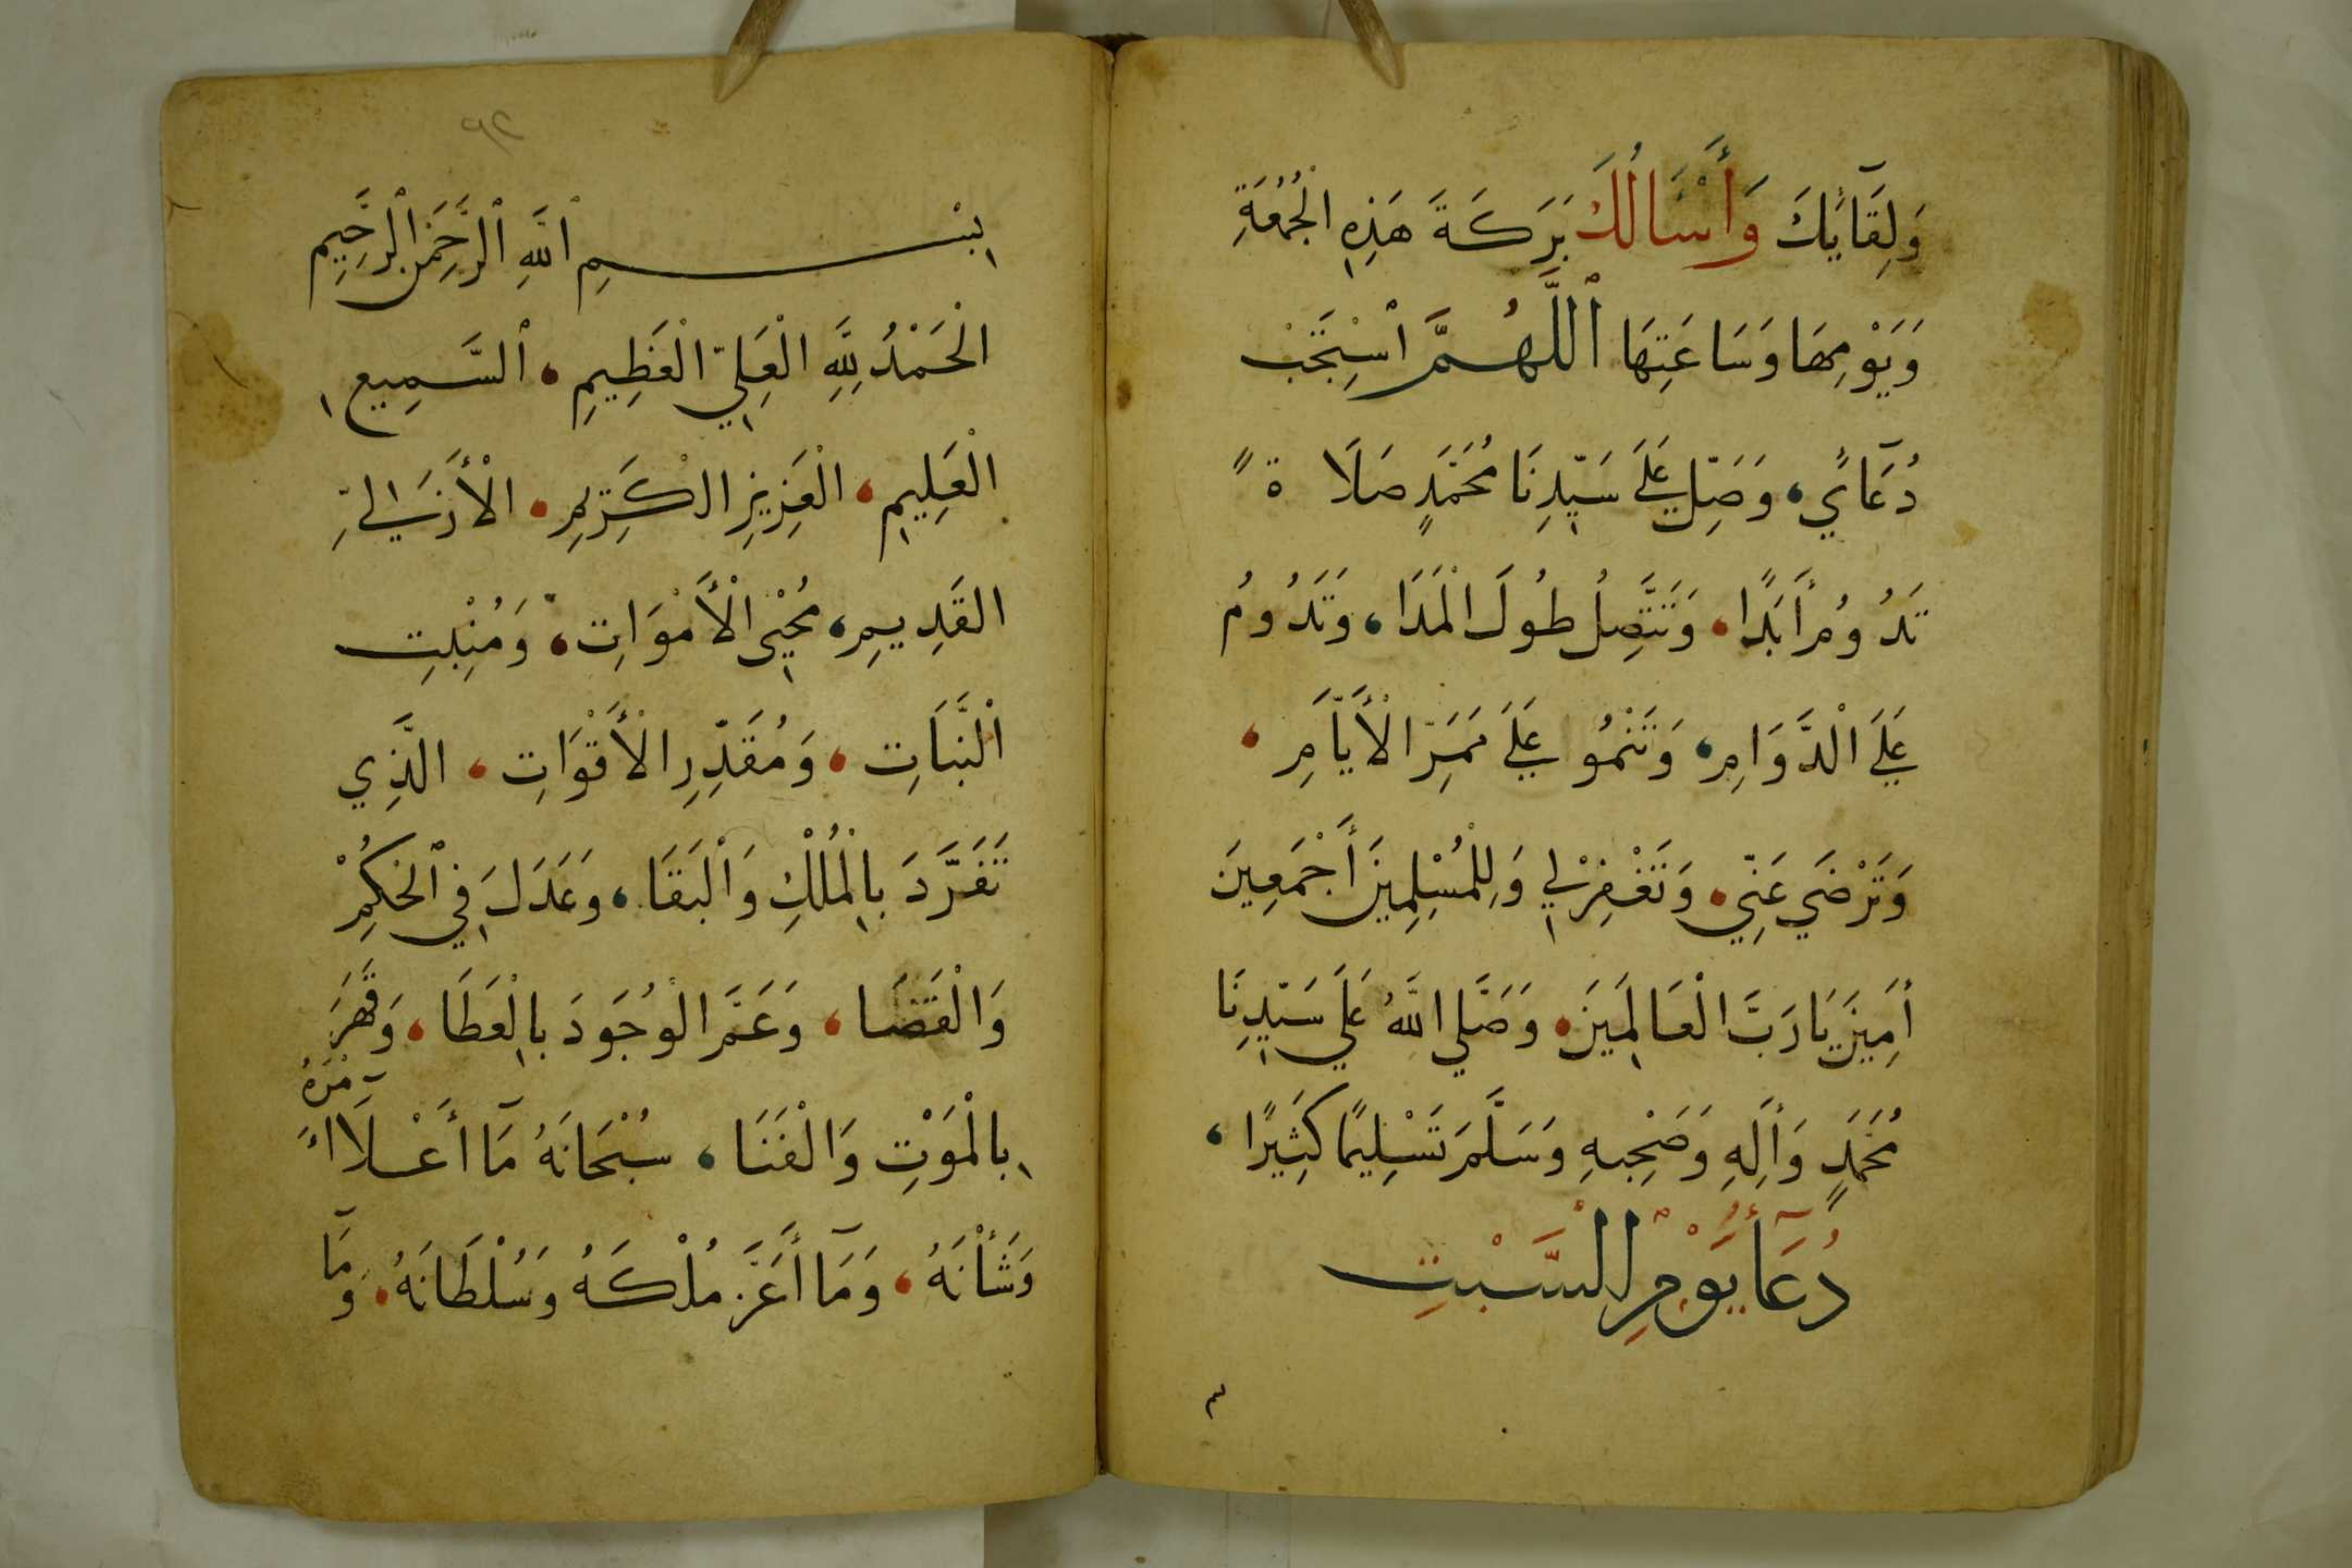 وَلِقَآئِكَ وَأَسْأَلُكَ بَرَكَةَ هَذِهِ الْجُمُعَةِ
وَيَوْمِهَا وَسَاعَتِهَا اَللَّهُمَّ اسْتَجِبْ
دُعَآئي، وَصَلِّ عَلَى سَيِّدِنَا مُحَمَّدٍ صَلَاةً
تَدُومُ أَبَدًا، وَتَتَّصِلُ طُولَ الْمَدَا، وَتَدُومُ
عَلَى الْدَّوَامِ، وَتَنْمُوا عَلَى مَمَرِّ الْأَيَّامِ،
وَتَرْضَي عَنِّي، وَتَغْفِرْ لِي وَلِلْمُسْلِمِينَ أَجْمَعِينَ
أَمِينَ يَا رَبَّ الْعَالَمِينَ، وَصَلَّي اللَّهُ عَلَي سَيِّدِنَا
مُحَمَّدٍ وَأَلِهِ وَصَحْبِهِ وَسَلَّمَ تَسْلِيمًا كَثِيرًا،
دُعَآ يَوْمِ السَّبْتِ
٩٢
بِسْمِ اللَّهِ الرَّحْمَنِ الرَّحِيمِ
الْحَمْدُ لِلَّهِ الْعَلِيِّ الْعَظِيمِ، السَّمِيعِ
الْعَلِيمِ، الْعَزِيزِ الْكَرِيمِ، الْأَزَلِيِّ
القَدِيمِ، مُحْيِي الْأَمْوَاتِ، وَمُنْبِتِ
الْنَّبَاتِ، وَمُقَدِّرِ الْأَقْوَاتِ، الَّذِي
تَفَرَّدَ بِالْمُلْكِ وَالْبَقَا، وَعَدَلَ فِي الْحُكْمِ
وَالْقَضَا، وَعَمَّ الْوُجُودَ بِالْعَطَا، وَقَهَرَ
بِالْمَوْتِ وَالْفَنَا، سُبْحَانَهُ مَآ أَعْلَا أَمْرَهُ
وَشَأْنَهُ، وَمَآ أَعَزَّ مُلْكَهُ وَسُلْطَانَهُ، وَمَآ